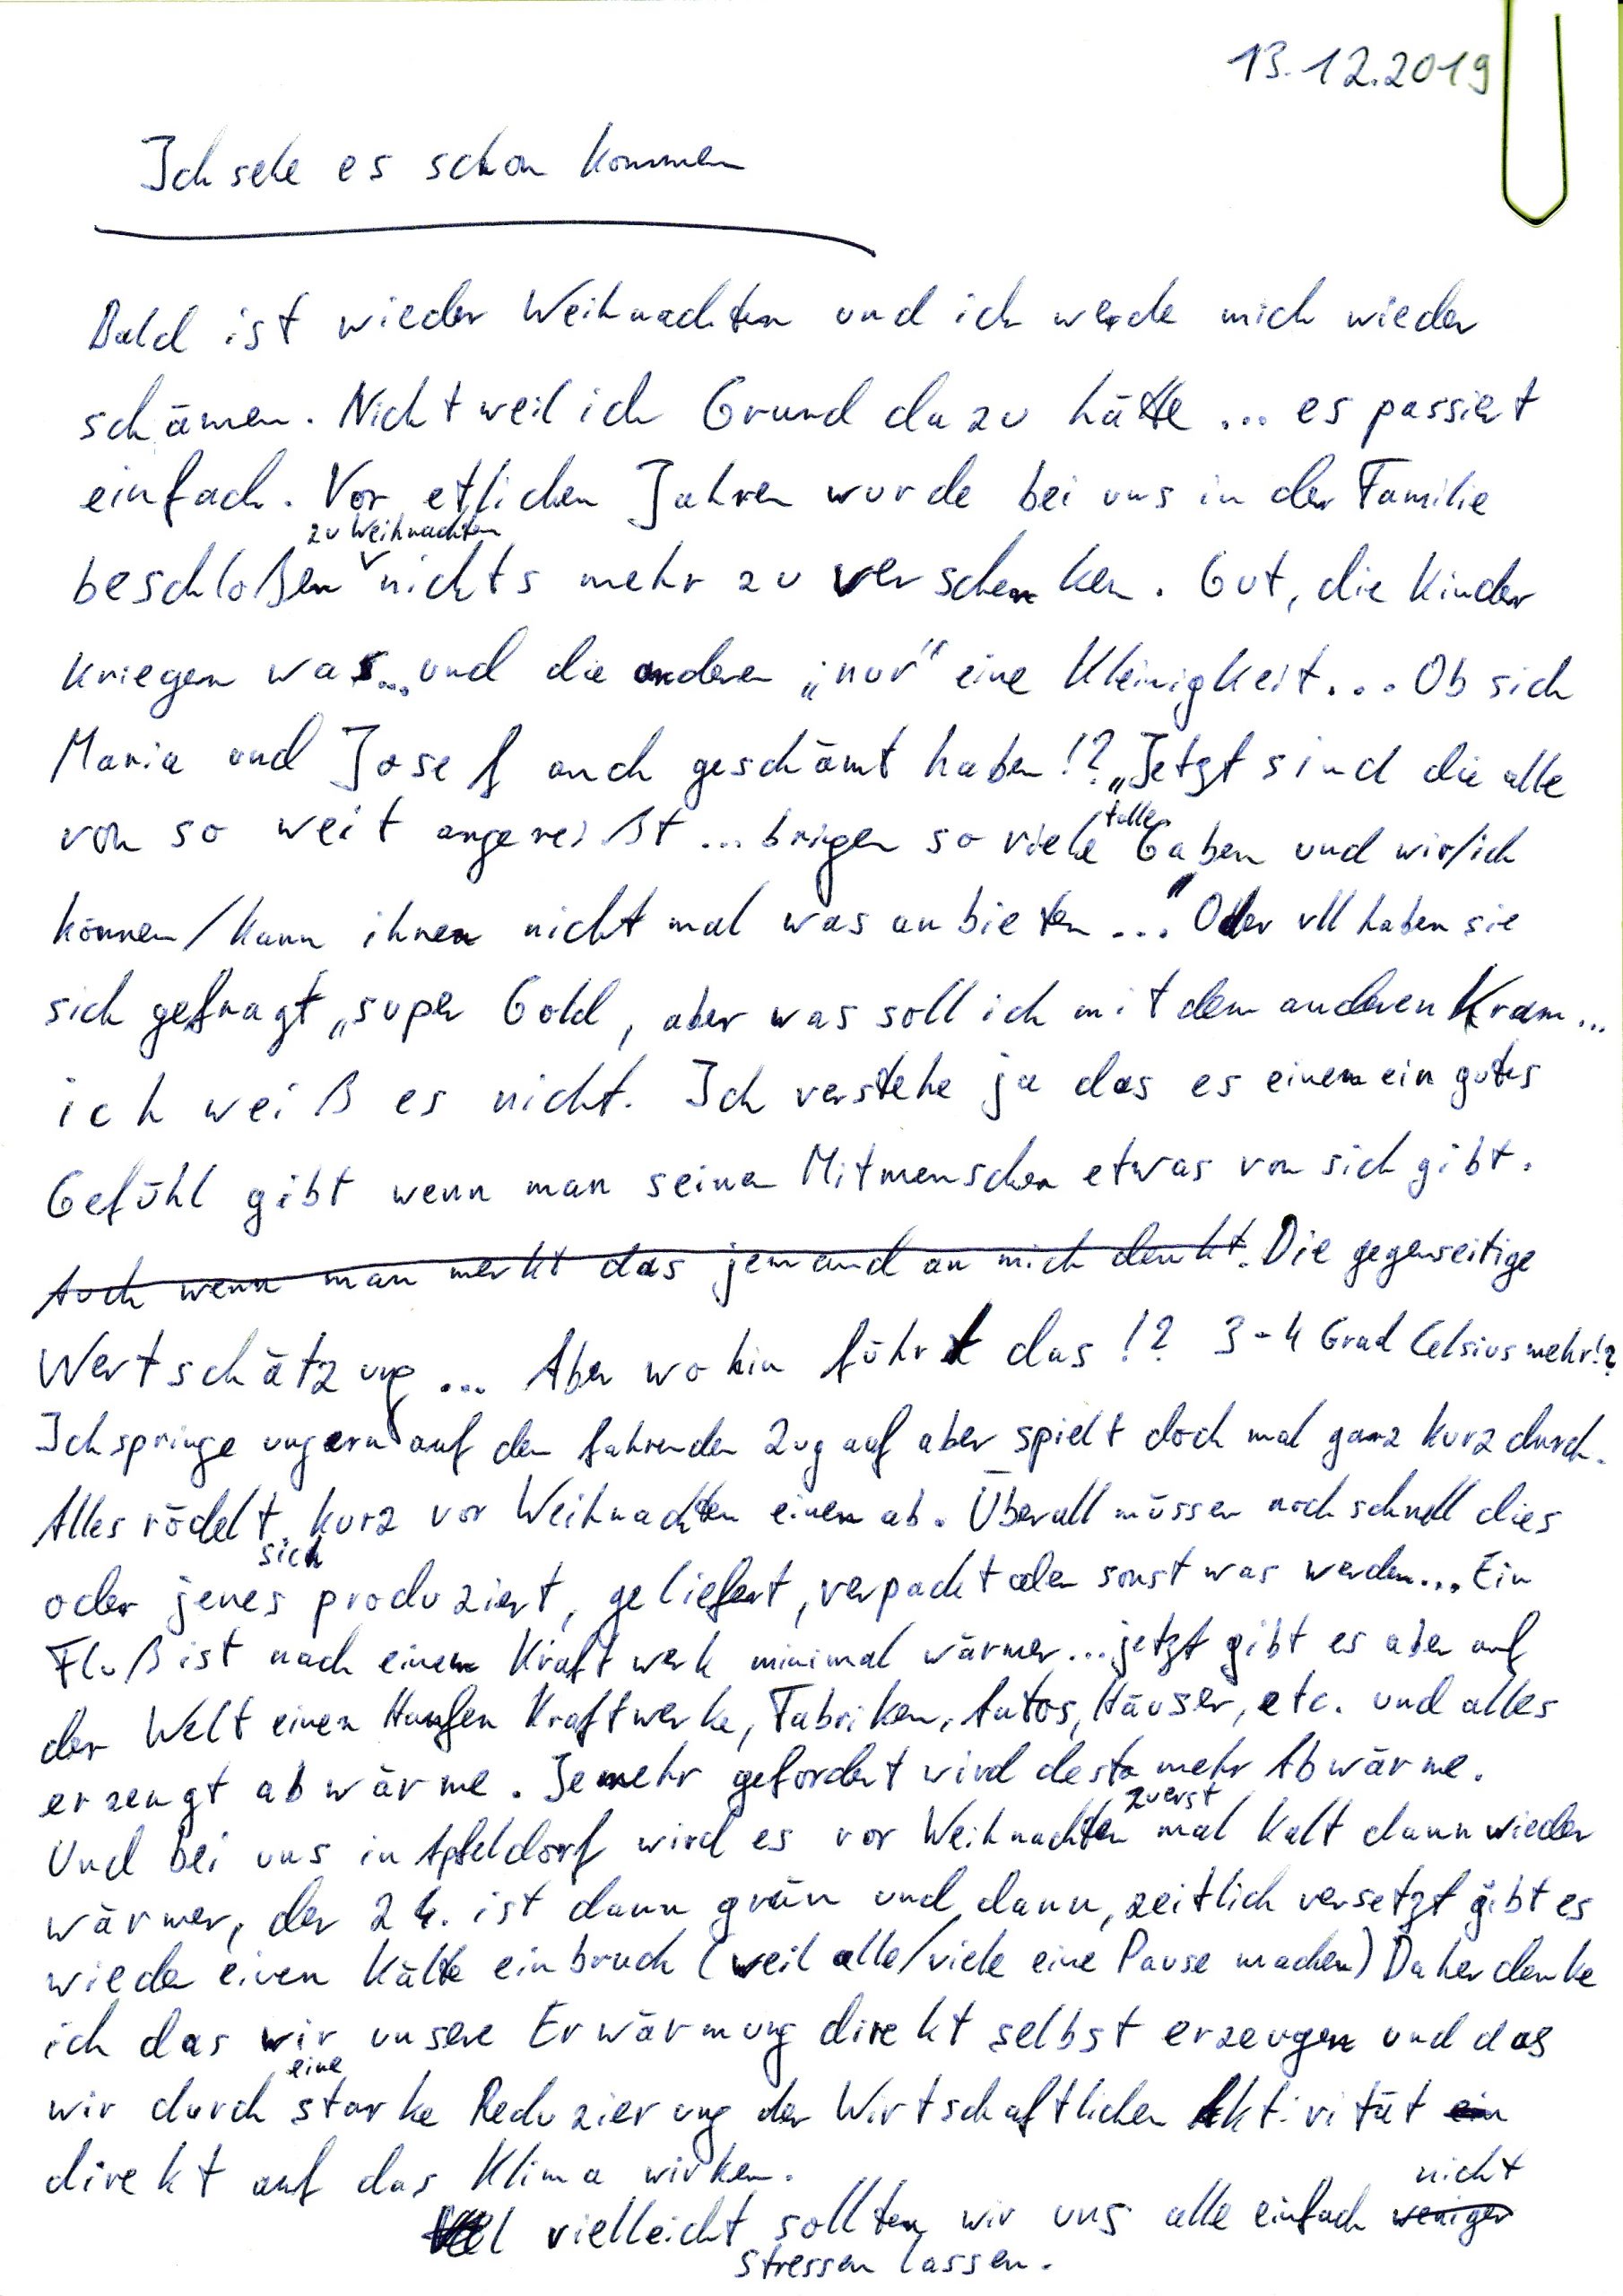 13.12.2019
Ich sehe es schon kommen
Bald ist wieder Weihnachten und ich werde mich wieder
schämen. Nicht weil ich Grund dazu hätte ... es passiert
einfach. Vor etlichen Jahren wurde bei uns in der Familie
zu Weihnachten
beschloßen nichts mehr zu verschenken. Gut, die Kinder
kriegen was... und die anderen „nur" eine Kleinigkeit... Ob sich
Maria und Josef auch geschämt haben!? „Jetzt sind die alle
tolle
von so weit angereißt ... bringen so viele Gaben und wir/ich
können/kann ihnen nicht mal was anbieten ..." Oder vll haben sie
sich gefragt „super Gold, aber was soll ich mit dem anderen Kram...
ich weiß es nicht. Ich verstehe ja das es einem ein gutes
Gefühl gibt wenn man seinen Mitmenschen etwas von sich gibt.
Auch wenn man merkt das jemand an mich denkt. Die gegenseitige
Wertschätzung ... Aber wohin führt das!? 3-4 Grad Celsius mehr!?
Ich springe ungern auf den fahrenden Zug auf aber spielt doch mal ganz kurz durch.
Alles rödelt kurz vor Weihnachten einen ab. Überall müssen noch schnell dies
sich
oder jenes produziert, geliefert, verpackt oder sonst was werden... Ein
Fluß ist nach einem Kraftwerk minimal wärmer... jetzt gibt es aber auf
der Welt einen Haufen Kraftwerke, Fabriken, Autos, Häuser, etc. und alles
erzeugt abwärme. Je mehr gefordert wird desto mehr Abwärme.
zuerst
Und bei uns in Apfeldorf wird es vor Weihnachten mal kalt dann wieder
wärmer, der 24. ist dann grün und dann, zeitlich versetzt gibt es
wieder einen Kälte einbruch (weil alle/viele eine Pause machen) Daher denke
ich das wir unsere Erwärmung direkt selbst erzeugen und das
eine
wir durch starke Reduzierung der Wirtschaftlichen Aktivität ein
direkt auf das Klima wirken.
nicht
vielleicht sollten wir uns alle einfach weniger
stressen lassen.